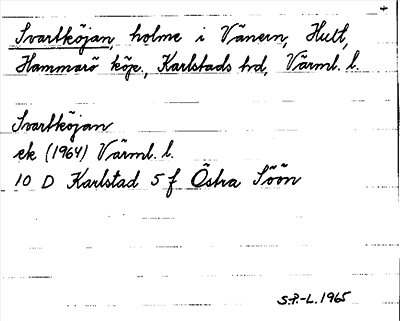 Svartköjan, holme i Vänern, Hult,
Hammarö köpg., Karlstads hd, Värml. l.
Svartköjan
ek (1964) Värml. l.
10 D Karlstad 5 f Östra Söön
S.P.-L. 1965